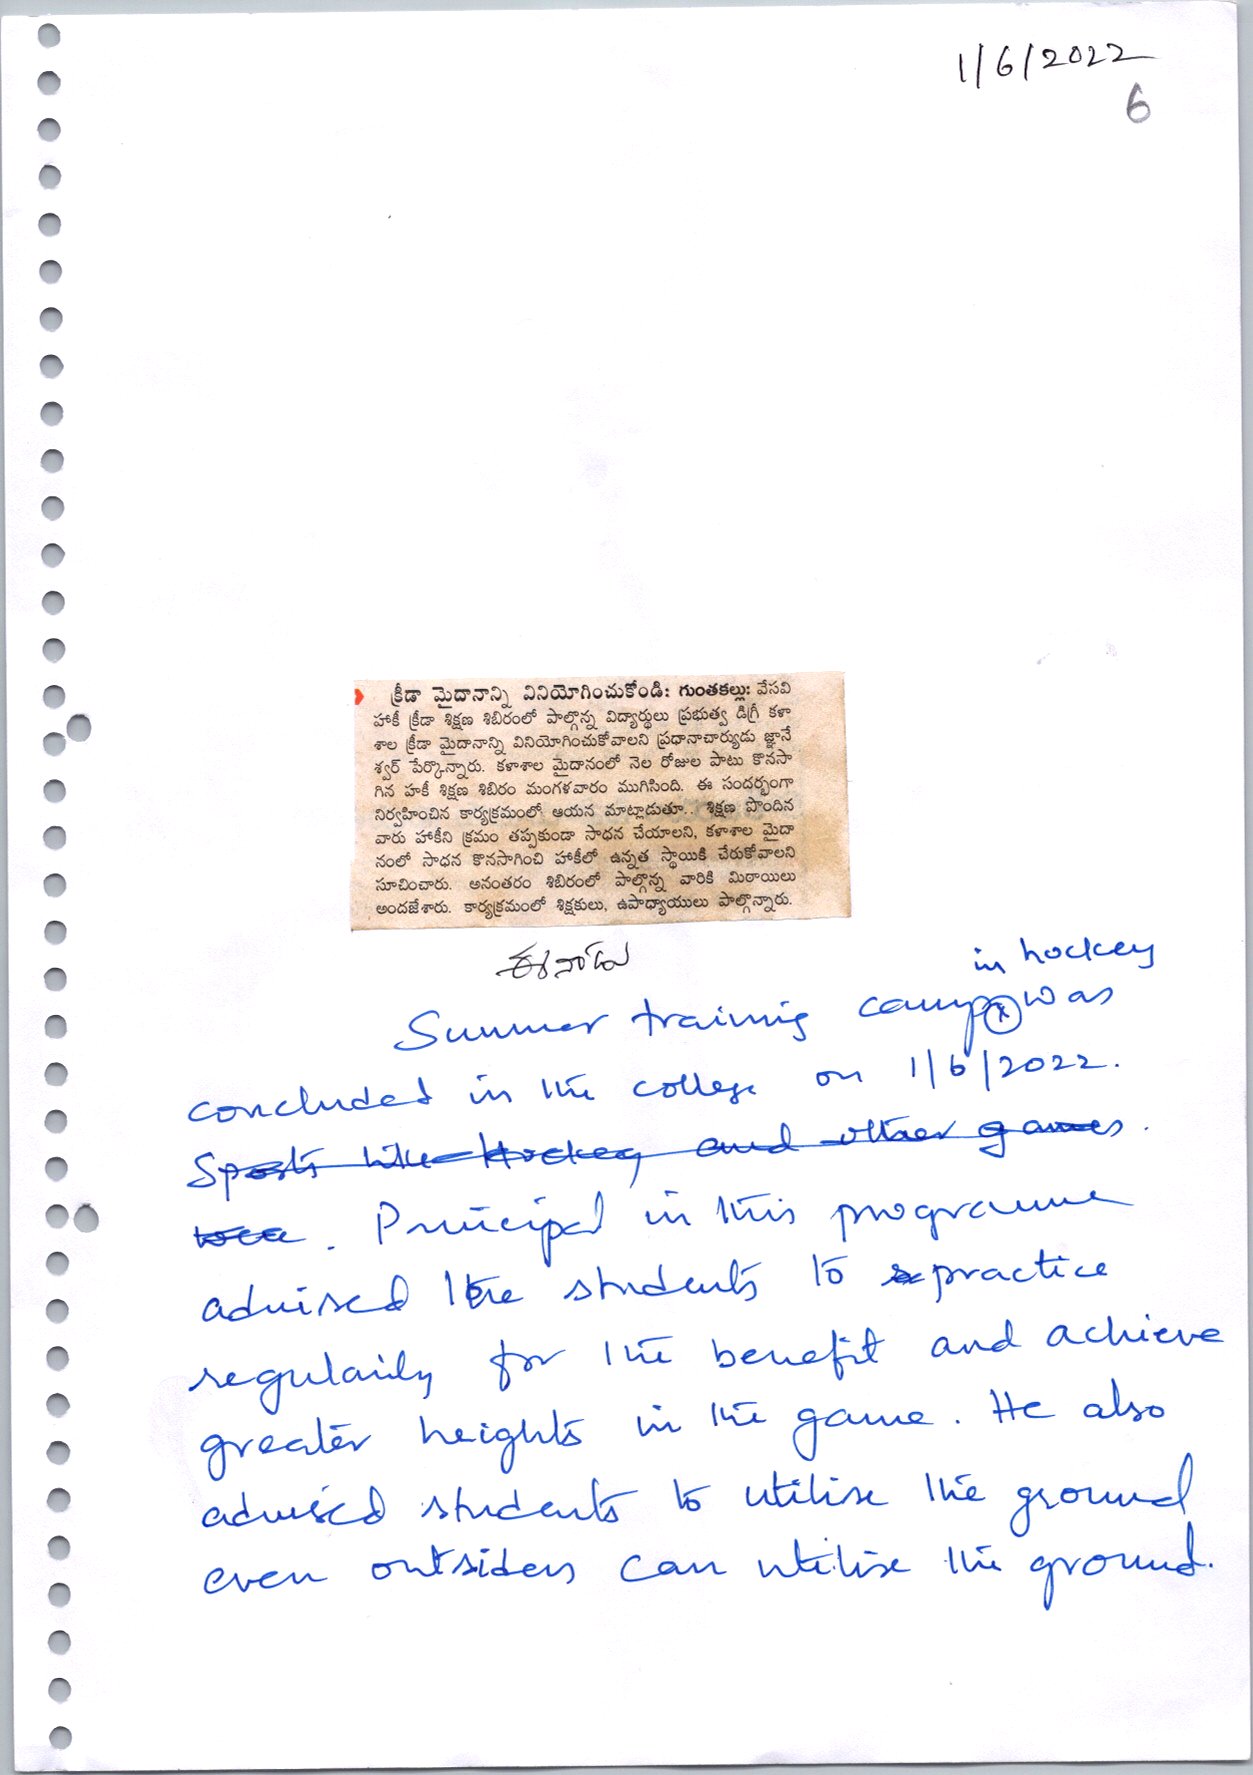 1/6/2022
6
క్రీడా మైదానాన్ని వినియోగించుకోండి: గుంతకల్లు: వేసవి
హాకీ క్రీడా శిక్షణ శిబిరంలో పాల్గొన్న విద్యార్థులు ప్రభుత్వ డిగ్రీ కళా
శాల క్రీడా మైదానాన్ని వినియోగించుకోవాలని ప్రధానాచార్యుడు జ్ఞానే
శ్వర్ పేర్కొన్నారు. కళాశాల మైదానంలో నెల రోజుల పాటు కొనసా
గిన హకీ శిక్షణ శిబిరం మంగళవారం ముగిసింది. ఈ సందర్భంగా
నిర్వహించిన కార్యక్రమంలో ఆయన మాట్లాడుతూ.. శిక్షణ పొందిన
వారు హాకీని క్రమం తప్పకుండా సాధన చేయాలని, కళాశాల మైదా
నంలో సాధన కొనసాగించి హాకీలో ఉన్నత స్థాయికి చేరుకోవాలని
సూచించారు. అనంతరం శిబిరంలో పాల్గొన్న వారికి మిఠాయిలు
అందజేశారు. కార్యక్రమంలో శిక్షకులు, ఉపాధ్యాయులు పాల్గొన్నారు.
ఈనాడు
in hockey
Summer training camp (x) was
concluded in the college on 1/6/2022.
Sports like Hockey and other games.
. Principal in this programme
advised the students to practice
regularily for the benefit and achieve
greater heights in the game. He also
advised students to utilise the ground
even outsiders can utilise the ground.